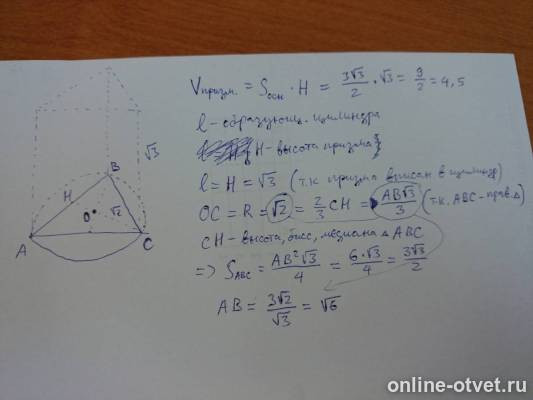 Vпризм. = Sосн · H = 3√3/2 · √3 = 9/2 = 4,5
l – образующ. цилиндра
H – высота призмы
l = H = √3 (т.к призма вписан в цилиндр)
OC = R = √2 = 2/3 CH = AB√3/3 (т.к. ABC – прав.Δ)
CH – высота, бисс, медиана Δ ABC
=> SABC = AB²√3/4 = 6·√3/4 = 3√3/2
AB = 3√2/√3 = √6
√3
B
H
O
√2
A
C
online-otvet.ru